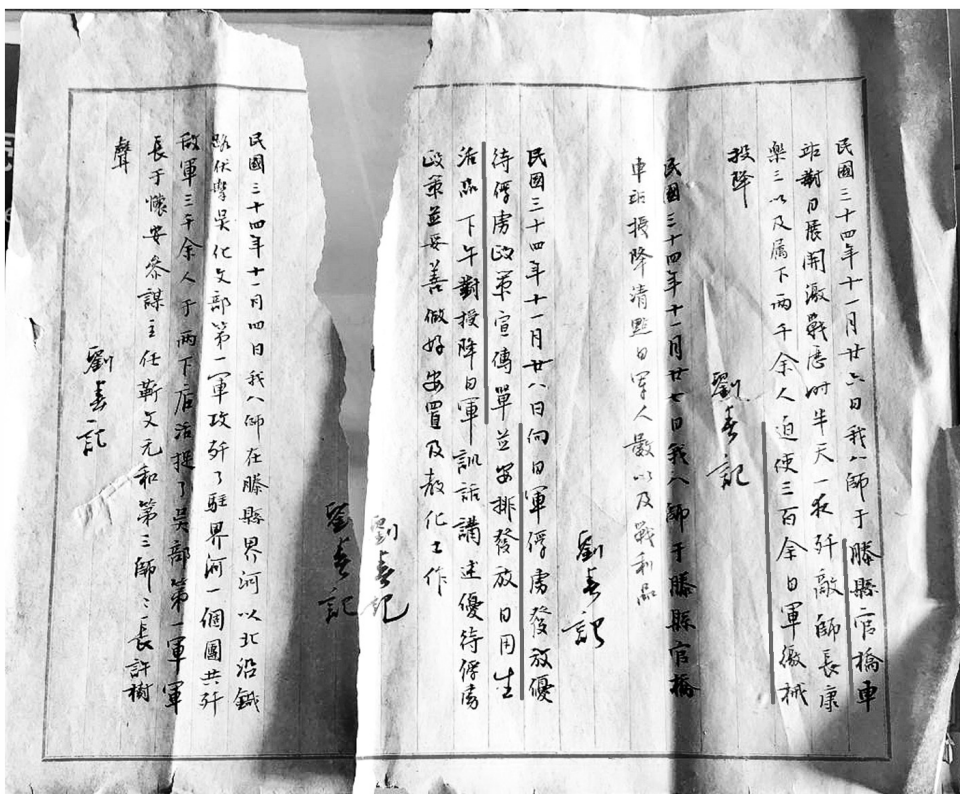 民國三十四年十一月廿六日我八師于滕縣官橋車
站對日展開激戰應時半天一夜歼敵師長康
樂三以及属下两千余人迫使三百余日軍繳械
投降
劉春記
民國三十四年十一月廿七日我八師于滕縣官橋
車站授降清點日軍人數以及戰利品
劉春記
民國三十四年十一月廿八日向日軍俘虜發放優
待俘虜政策宣傳單並安排發放日用生
活品下午對授降日軍訓話講述優待俘虜
政策並妥善做好安置及教化士作
劉春記
劉春記
民國三十四年十一月四日我八師在滕縣界河以北沿鐵
路伏擊吴化文部第一軍攻歼了駐界河一個團共歼
敵軍三千余人于两下店活捉了吴部第一軍軍
長于懷安參謀主任靳文元和第三師師長許樹
聲
劉春記